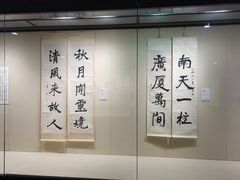 秋月開靈境
清風來故人
南天一柱
廣厦萬間